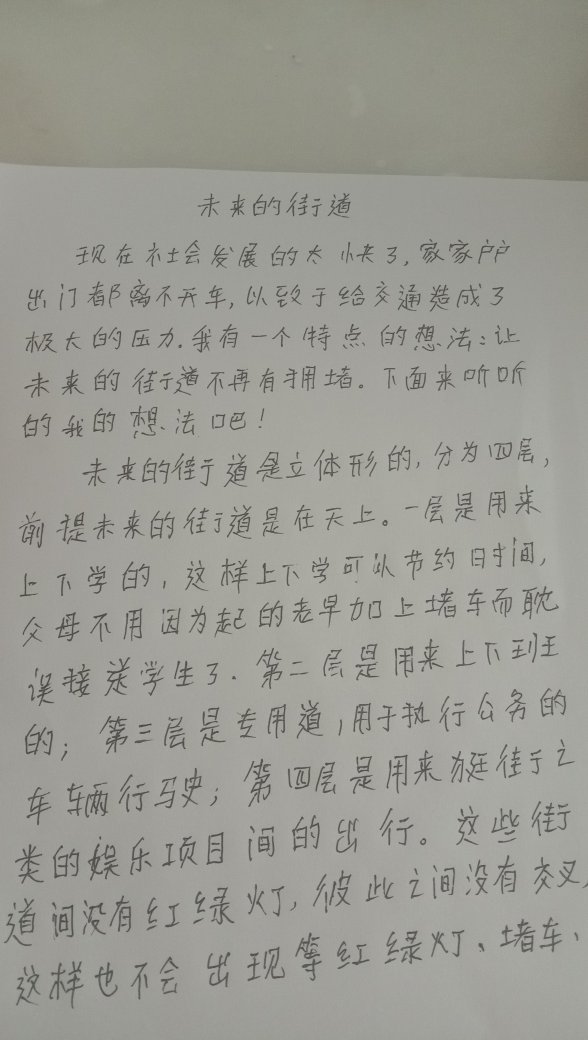 未来的街道
现在社会发展的太快了,家家户户
出门都离不开车,以致于给交通造成了
极大的压力.我有一个特点的想法:让
未来的街道不再有拥堵。下面来听听
的我的想法吧!
未来的街道是立体形的,分为四层,
前提未来的街道是在天上。一层是用来
上下学的,这样上下学可以节约时间,
父母不用因为起的老早加上堵车而耽
误接送学生了.第二层是用来上下到王
的;第三层是专用道,用于执行公务的
车辆行驶;第四层是用来逛街之
类的娱乐项目间的出行。这些街
道间没有红绿灯,彼此之间没有交叉,
这样也不会出现等红绿灯、堵车、